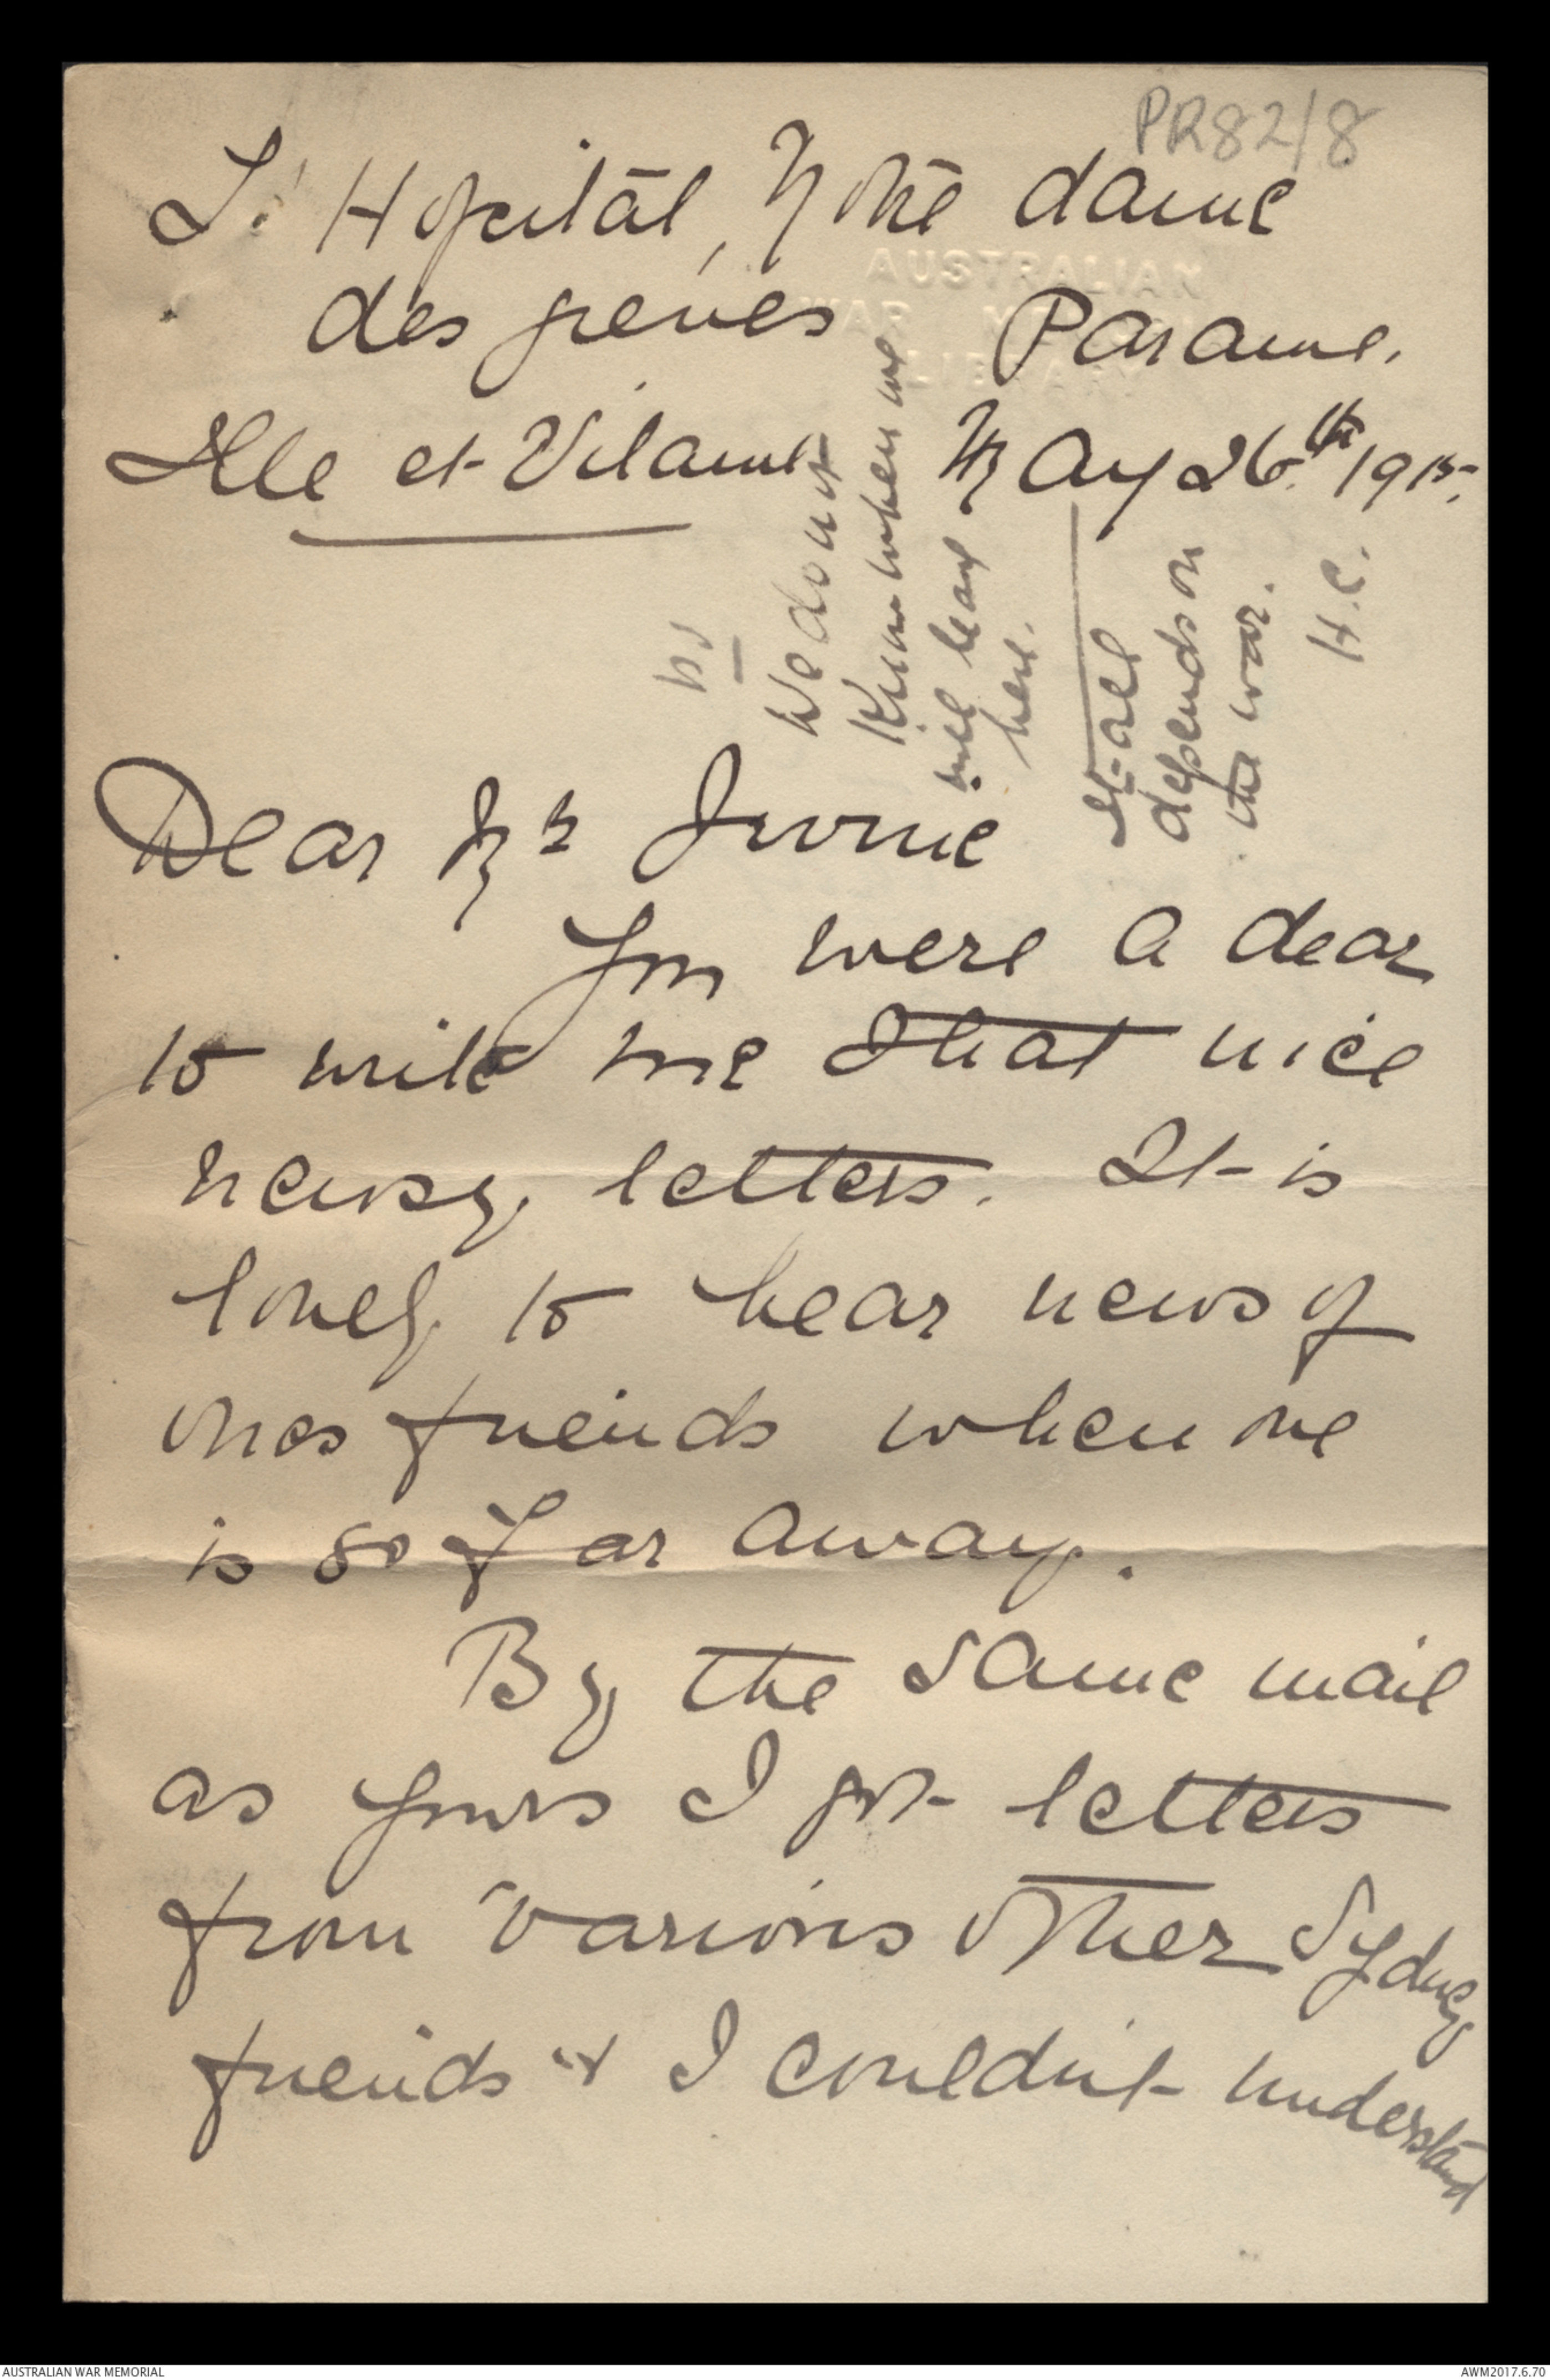 PR82/8
L'Hopitāl, Notre dame
des greves Parame.
Ille et Vilaine May 26th 1915.
AUSTRALIAN
WAR MEMORIAL
LIBRARY
PS
We dont
know when we
will leave
here.
It all
depends on
the war.
H.C.
Dear Mrs Irvine
You were a dear
to write me that nice
newsy letters. It is
lovely to hear news of
ones friends when one
is so far away.
By the same mail
as yours I got letters
from various other Sydney
friends & I couldn't understand
AUSTRALIAN WAR MEMORIAL
AWM2017.6.70